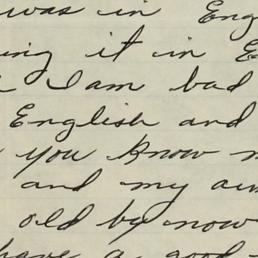 was in Eng
ing it in E
I am bad
English and
you know m
and my au
old by now
have a good